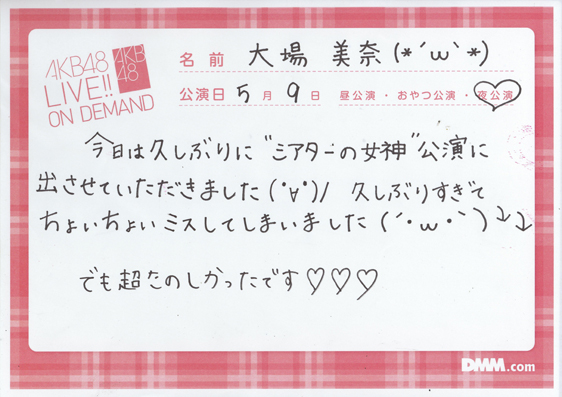 AKB48
LIVE!!
ON DEMAND
AKB
48
名前 大場 美奈(*´ω`*)
公演日 5月9日 昼公演・おやつ公演・夜公演
今日は久しぶりに"シアターの女神"公演に
出させていただきました(･∀･)/ 久しぶりすぎて
ちょいちょいミスしてしまいました(´･ω･`)↓↓
でも超たのしかったです♡♡♡
DMM.com